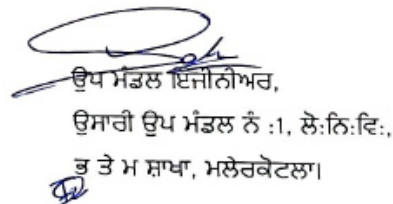 ਉਪ ਮੰਡਲ ਇੰਜੀਨੀਅਰ,
ਉਸਾਰੀ ਉਪ ਮੰਡਲ ਨੰ :1, ਲੋ:ਨਿ:ਵਿ:,
ਭ ਤੇ ਮ ਸ਼ਾਖਾ, ਮਲੇਰਕੋਟਲਾ।